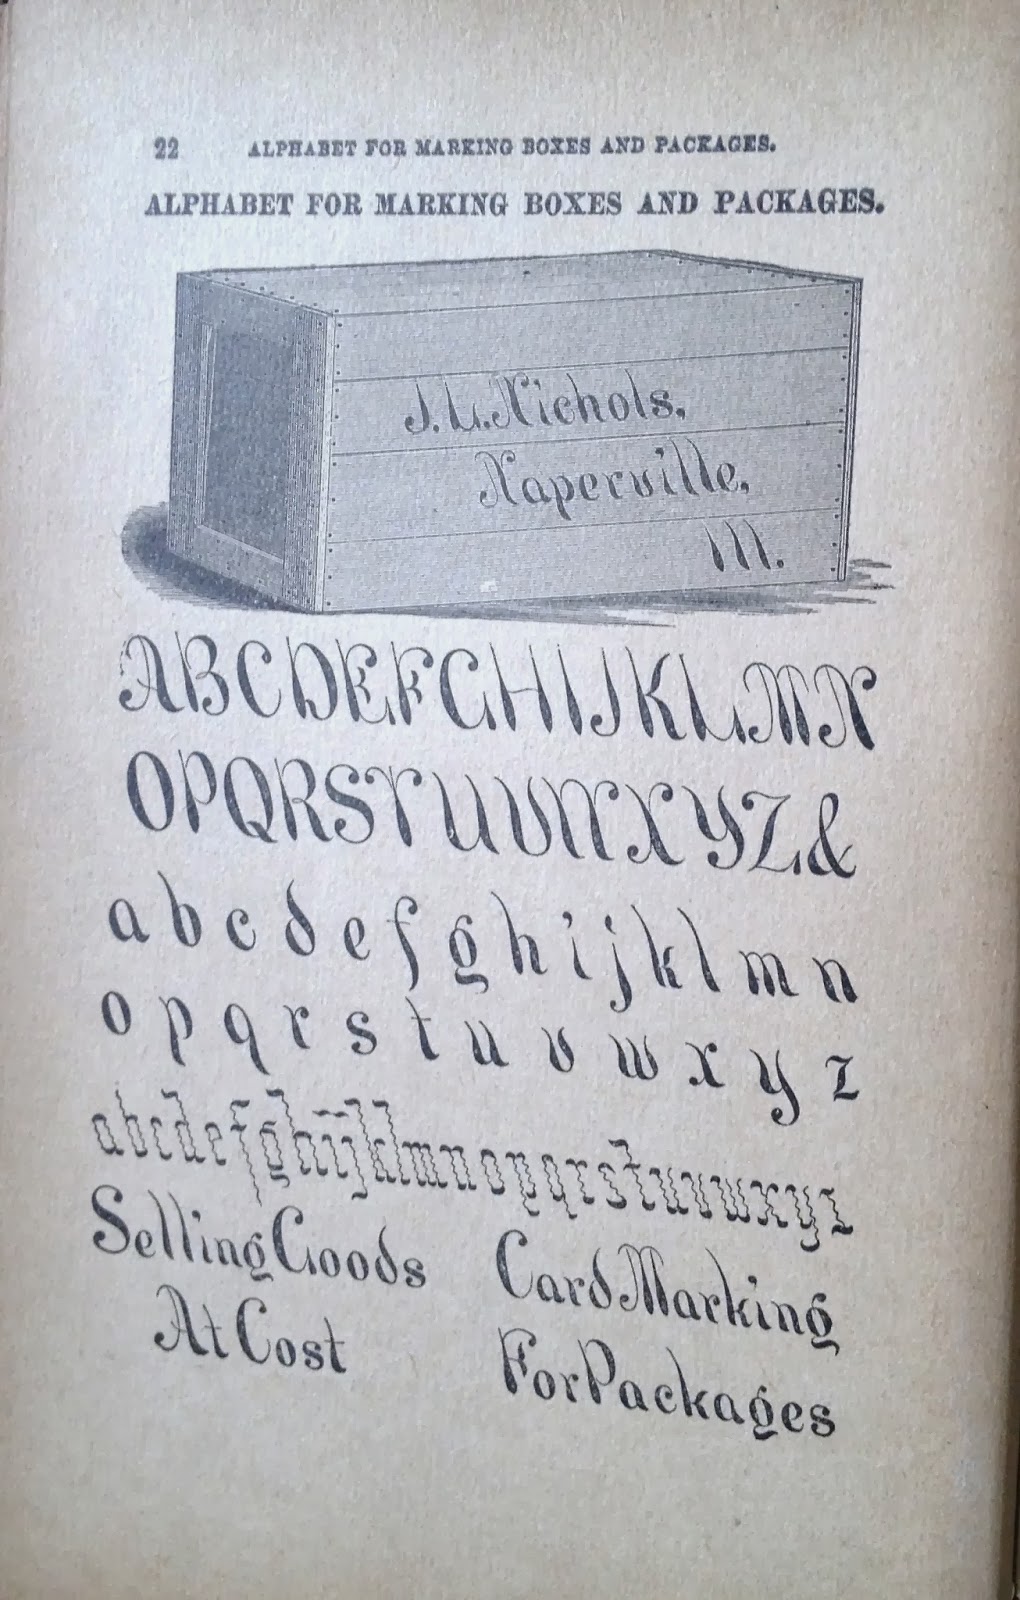 22 ALPHABET FOR MARKING BOXES AND PACKAGES.
ALPHABET FOR MARKING BOXES AND PACKAGES.
J. L. Nichols,
Naperville,
Ill.
ABCDEFGHIJKLMN
OPQRSTUVWXYZ&
a b c d e f g h i j k l m n
o p q r s t u v w x y z
abcdefghijklmnopqrstuvwxyz
Selling Goods
At Cost
Card Marking
For Packages